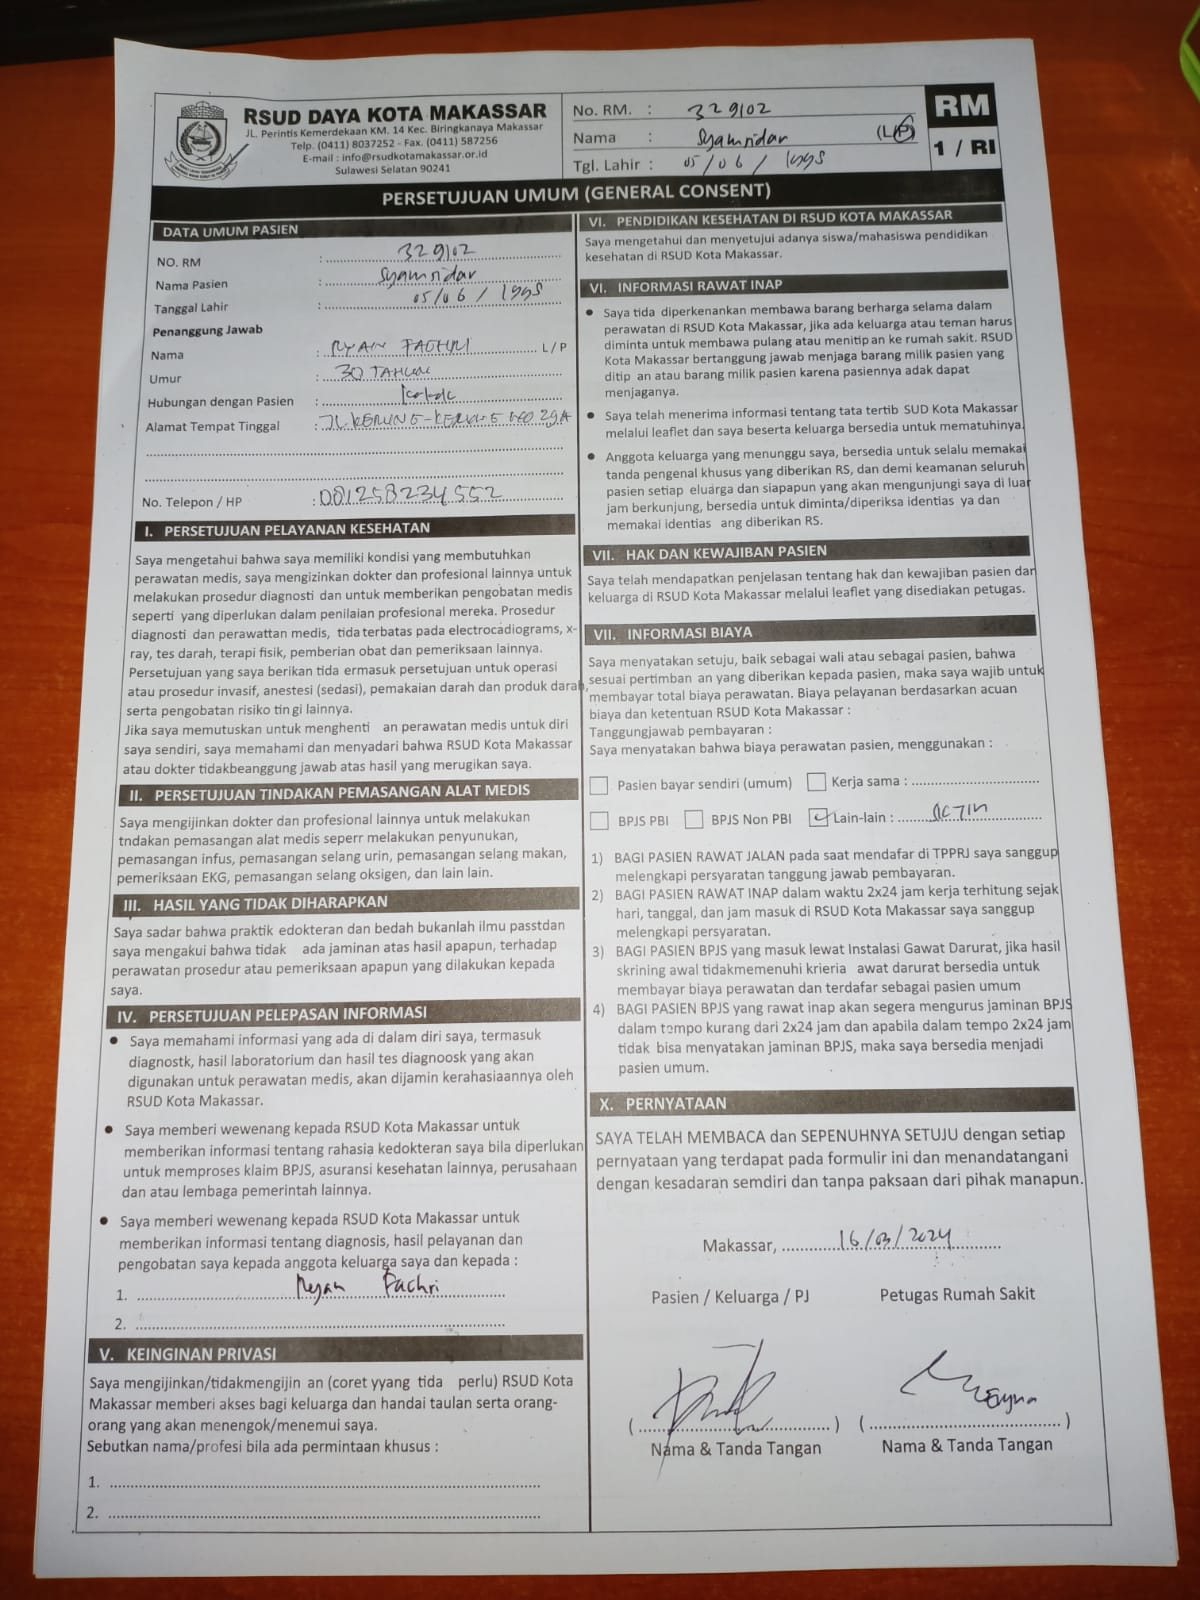 RSUD DAYA KOTA MAKASSAR
JL. Perintis Kemerdekaan KM. 14 Kec. Biringkanaya Makassar
Telp. (0411) 8037252 - Fax. (0411) 587256
E-mail : info@rsudkotamakassar.or.id
Sulawesi Selatan 90241
No. RM. : 329102
Nama : Syamridar (L/P)
Tgl. Lahir : 05/06/1995
RM
1 / RI
PERSETUJUAN UMUM (GENERAL CONSENT)
DATA UMUM PASIEN
NO. RM : 329102
Nama Pasien : Syamridar
Tanggal Lahir : 05/06/1995
Penanggung Jawab
Nama : RYAN FACHRI L/P
Umur : 30 TAHUN
Hubungan dengan Pasien :
Alamat Tempat Tinggal : JL. 29A
No. Telepon / HP : 081258234552
I. PERSETUJUAN PELAYANAN KESEHATAN
Saya mengetahui bahwa saya memiliki kondisi yang membutuhkan
perawatan medis, saya mengizinkan dokter dan profesional lainnya untuk
melakukan prosedur diagnosti dan untuk memberikan pengobatan medis
seperti yang diperlukan dalam penilaian profesional mereka. Prosedur
diagnosti dan perawattan medis, tida terbatas pada electrocadiograms, x-
ray, tes darah, terapi fisik, pemberian obat dan pemeriksaan lainnya.
Persetujuan yang saya berikan tida ermasuk persetujuan untuk operasi
atau prosedur invasif, anestesi (sedasi), pemakaian darah dan produk darah,
serta pengobatan risiko tin gi lainnya.
Jika saya memutuskan untuk menghenti an perawatan medis untuk diri
saya sendiri, saya memahami dan menyadari bahwa RSUD Kota Makassar
atau dokter tidakbeanggung jawab atas hasil yang merugikan saya.
II. PERSETUJUAN TINDAKAN PEMASANGAN ALAT MEDIS
Saya mengijinkan dokter dan profesional lainnya untuk melakukan
tndakan pemasangan alat medis seperr melakukan penyunukan,
pemasangan infus, pemasangan selang urin, pemasangan selang makan,
pemeriksaan EKG, pemasangan selang oksigen, dan lain lain.
III. HASIL YANG TIDAK DIHARAPKAN
Saya sadar bahwa praktik edokteran dan bedah bukanlah ilmu passtdan
saya mengakui bahwa tidak ada jaminan atas hasil apapun, terhadap
perawatan prosedur atau pemeriksaan apapun yang dilakukan kepada
saya.
IV. PERSETUJUAN PELEPASAN INFORMASI
• Saya memahami informasi yang ada di dalam diri saya, termasuk
diagnostk, hasil laboratorium dan hasil tes diagnoosk yang akan
digunakan untuk perawatan medis, akan dijamin kerahasiaannya oleh
RSUD Kota Makassar.
• Saya memberi wewenang kepada RSUD Kota Makassar untuk
memberikan informasi tentang rahasia kedokteran saya bila diperlukan
untuk memproses klaim BPJS, asuransi kesehatan lainnya, perusahaan
dan atau lembaga pemerintah lainnya.
• Saya memberi wewenang kepada RSUD Kota Makassar untuk
memberikan informasi tentang diagnosis, hasil pelayanan dan
pengobatan saya kepada anggota keluarga saya dan kepada :
1. Ryan Fachri
2.
V. KEINGINAN PRIVASI
Saya mengijinkan/tidakmengijin an (coret yyang tida perlu) RSUD Kota
Makassar memberi akses bagi keluarga dan handai taulan serta orang-
orang yang akan menengok/menemui saya.
Sebutkan nama/profesi bila ada permintaan khusus :
1.
2.
VI. PENDIDIKAN KESEHATAN DI RSUD KOTA MAKASSAR
Saya mengetahui dan menyetujui adanya siswa/mahasiswa pendidikan
kesehatan di RSUD Kota Makassar.
VI. INFORMASI RAWAT INAP
• Saya tida diperkenankan membawa barang berharga selama dalam
perawatan di RSUD Kota Makassar, jika ada keluarga atau teman harus
diminta untuk membawa pulang atau menitip an ke rumah sakit. RSUD
Kota Makassar bertanggung jawab menjaga barang milik pasien yang
ditip an atau barang milik pasien karena pasiennya adak dapat
menjaganya.
• Saya telah menerima informasi tentang tata tertib SUD Kota Makassar
melalui leaflet dan saya beserta keluarga bersedia untuk mematuhinya.
• Anggota keluarga yang menunggu saya, bersedia untuk selalu memakai
tanda pengenal khusus yang diberikan RS, dan demi keamanan seluruh
pasien setiap eluarga dan siapapun yang akan mengunjungi saya di luar
jam berkunjung, bersedia untuk diminta/diperiksa identias ya dan
memakai identias ang diberikan RS.
VII. HAK DAN KEWAJIBAN PASIEN
Saya telah mendapatkan penjelasan tentang hak dan kewajiban pasien dan
keluarga di RSUD Kota Makassar melalui leaflet yang disediakan petugas.
VII. INFORMASI BIAYA
Saya menyatakan setuju, baik sebagai wali atau sebagai pasien, bahwa
sesuai pertimban an yang diberikan kepada pasien, maka saya wajib untuk
membayar total biaya perawatan. Biaya pelayanan berdasarkan acuan
biaya dan ketentuan RSUD Kota Makassar :
Tanggungjawab pembayaran :
Saya menyatakan bahwa biaya perawatan pasien, menggunakan :
Pasien bayar sendiri (umum) Kerja sama :
BPJS PBI BPJS Non PBI Lain-lain :
1) BAGI PASIEN RAWAT JALAN pada saat mendafar di TPPRJ saya sanggup
melengkapi persyaratan tanggung jawab pembayaran.
2) BAGI PASIEN RAWAT INAP dalam waktu 2x24 jam kerja terhitung sejak
hari, tanggal, dan jam masuk di RSUD Kota Makassar saya sanggup
melengkapi persyaratan.
3) BAGI PASIEN BPJS yang masuk lewat Instalasi Gawat Darurat, jika hasil
skrining awal tidakmemenuhi krieria awat darurat bersedia untuk
membayar biaya perawatan dan terdafar sebagai pasien umum
4) BAGI PASIEN BPJS yang rawat inap akan segera mengurus jaminan BPJS
dalam tempo kurang dari 2x24 jam dan apabila dalam tempo 2x24 jam
tidak bisa menyatakan jaminan BPJS, maka saya bersedia menjadi
pasien umum.
X. PERNYATAAN
SAYA TELAH MEMBACA dan SEPENUHNYA SETUJU dengan setiap
pernyataan yang terdapat pada formulir ini dan menandatangani
dengan kesadaran semdiri dan tanpa paksaan dari pihak manapun.
Makassar, 16/03/2024
Pasien / Keluarga / PJ Petugas Rumah Sakit
Nama & Tanda Tangan Nama & Tanda Tangan